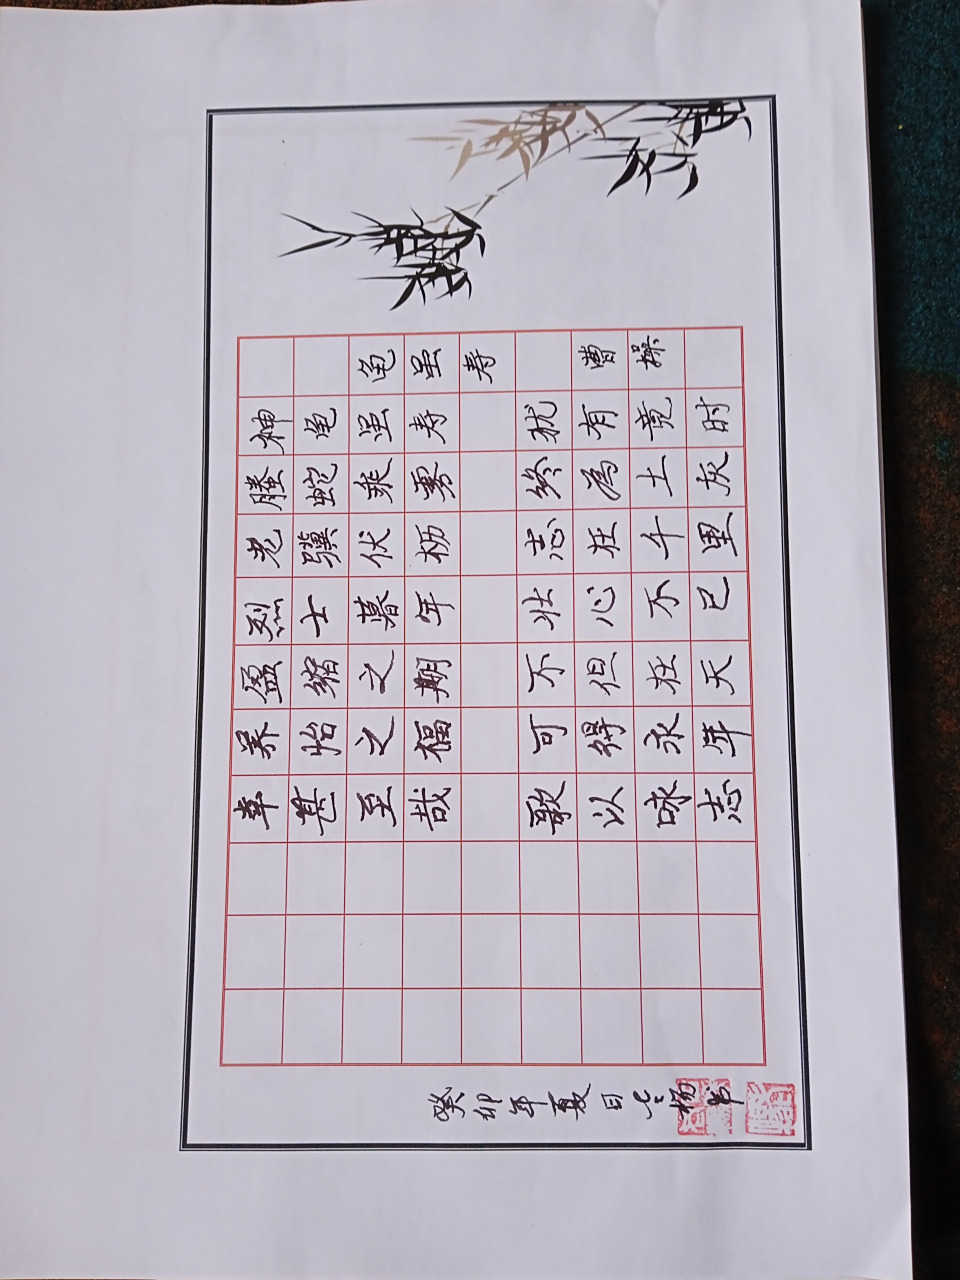 龟虽寿 曹操
神龟虽寿 犹有竟时
螣蛇乘雾 终為土灰
老骥伏枥 志在千里
烈士暮年 壮心不已
盈缩之期 不但在天
养怡之福 可得永年
幸甚至哉 歌以咏志
癸卯年夏日 杨书